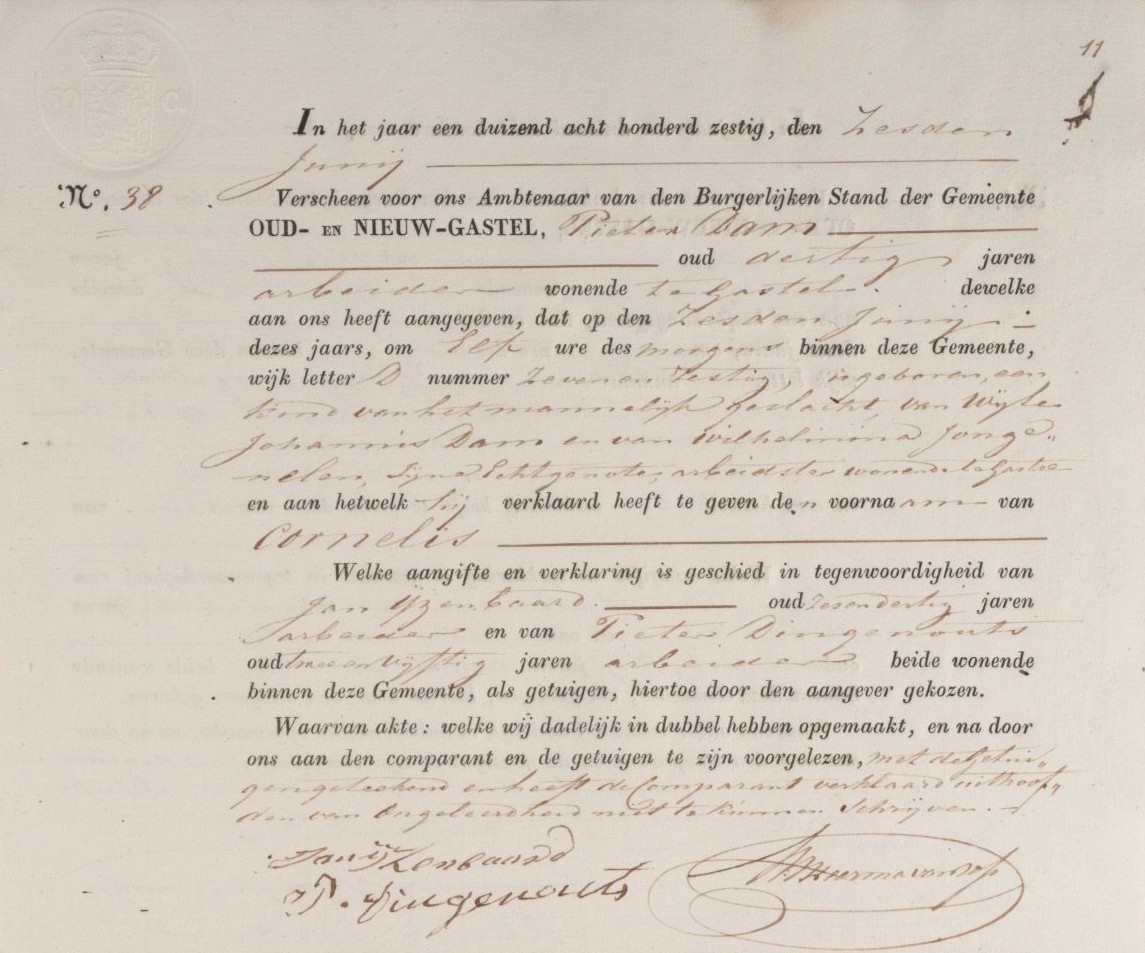 11
50 C.
In het jaar een duizend acht honderd zestig, den Zesden
Junij
No. 38 Verscheen voor ons Ambtenaar van den Burgerlijken Stand der Gemeente
OUD- EN NIEUW-GASTEL, Pieter Dam
oud dertig jaren
arbeider wonende te Gastel. dewelke
aan ons heeft aangegeven, dat op den Zesden Junij
dezes jaars, om Elf ure des morgens binnen deze Gemeente,
wijk letter D nummer Zeven en Zestig, is geboren, een
Kind van het mannelijk geslacht, van Wijle
Johannis Dam en van Wilhelmina Jonge„
nelen, Zijne Echtgenote, arbeidster wonende te Gastel
en aan hetwelk hij verklaard heeft te geven den voornaam van
Cornelis
Welke aangifte en verklaring is geschied in tegenwoordigheid van
Jan IJzenbaard. oud Zesendertig jaren
arbeider en van Pieter Dingenouts
oud twee en vijftig jaren arbeider beide wonende
binnen deze Gemeente, als getuigen, hiertoe door den aangever gekozen.
Waarvan akte: welke wij dadelijk in dubbel hebben opgemaakt, en na door
ons aan den comparant en de getuigen te zijn voorgelezen, met de getui„
gen geteekend en heeft de Comparant verklaard uit hoof„
den van Ongeleerdheid niet te kunnen Schrijven.
Jan IJzenbaard
P. Dingenouts